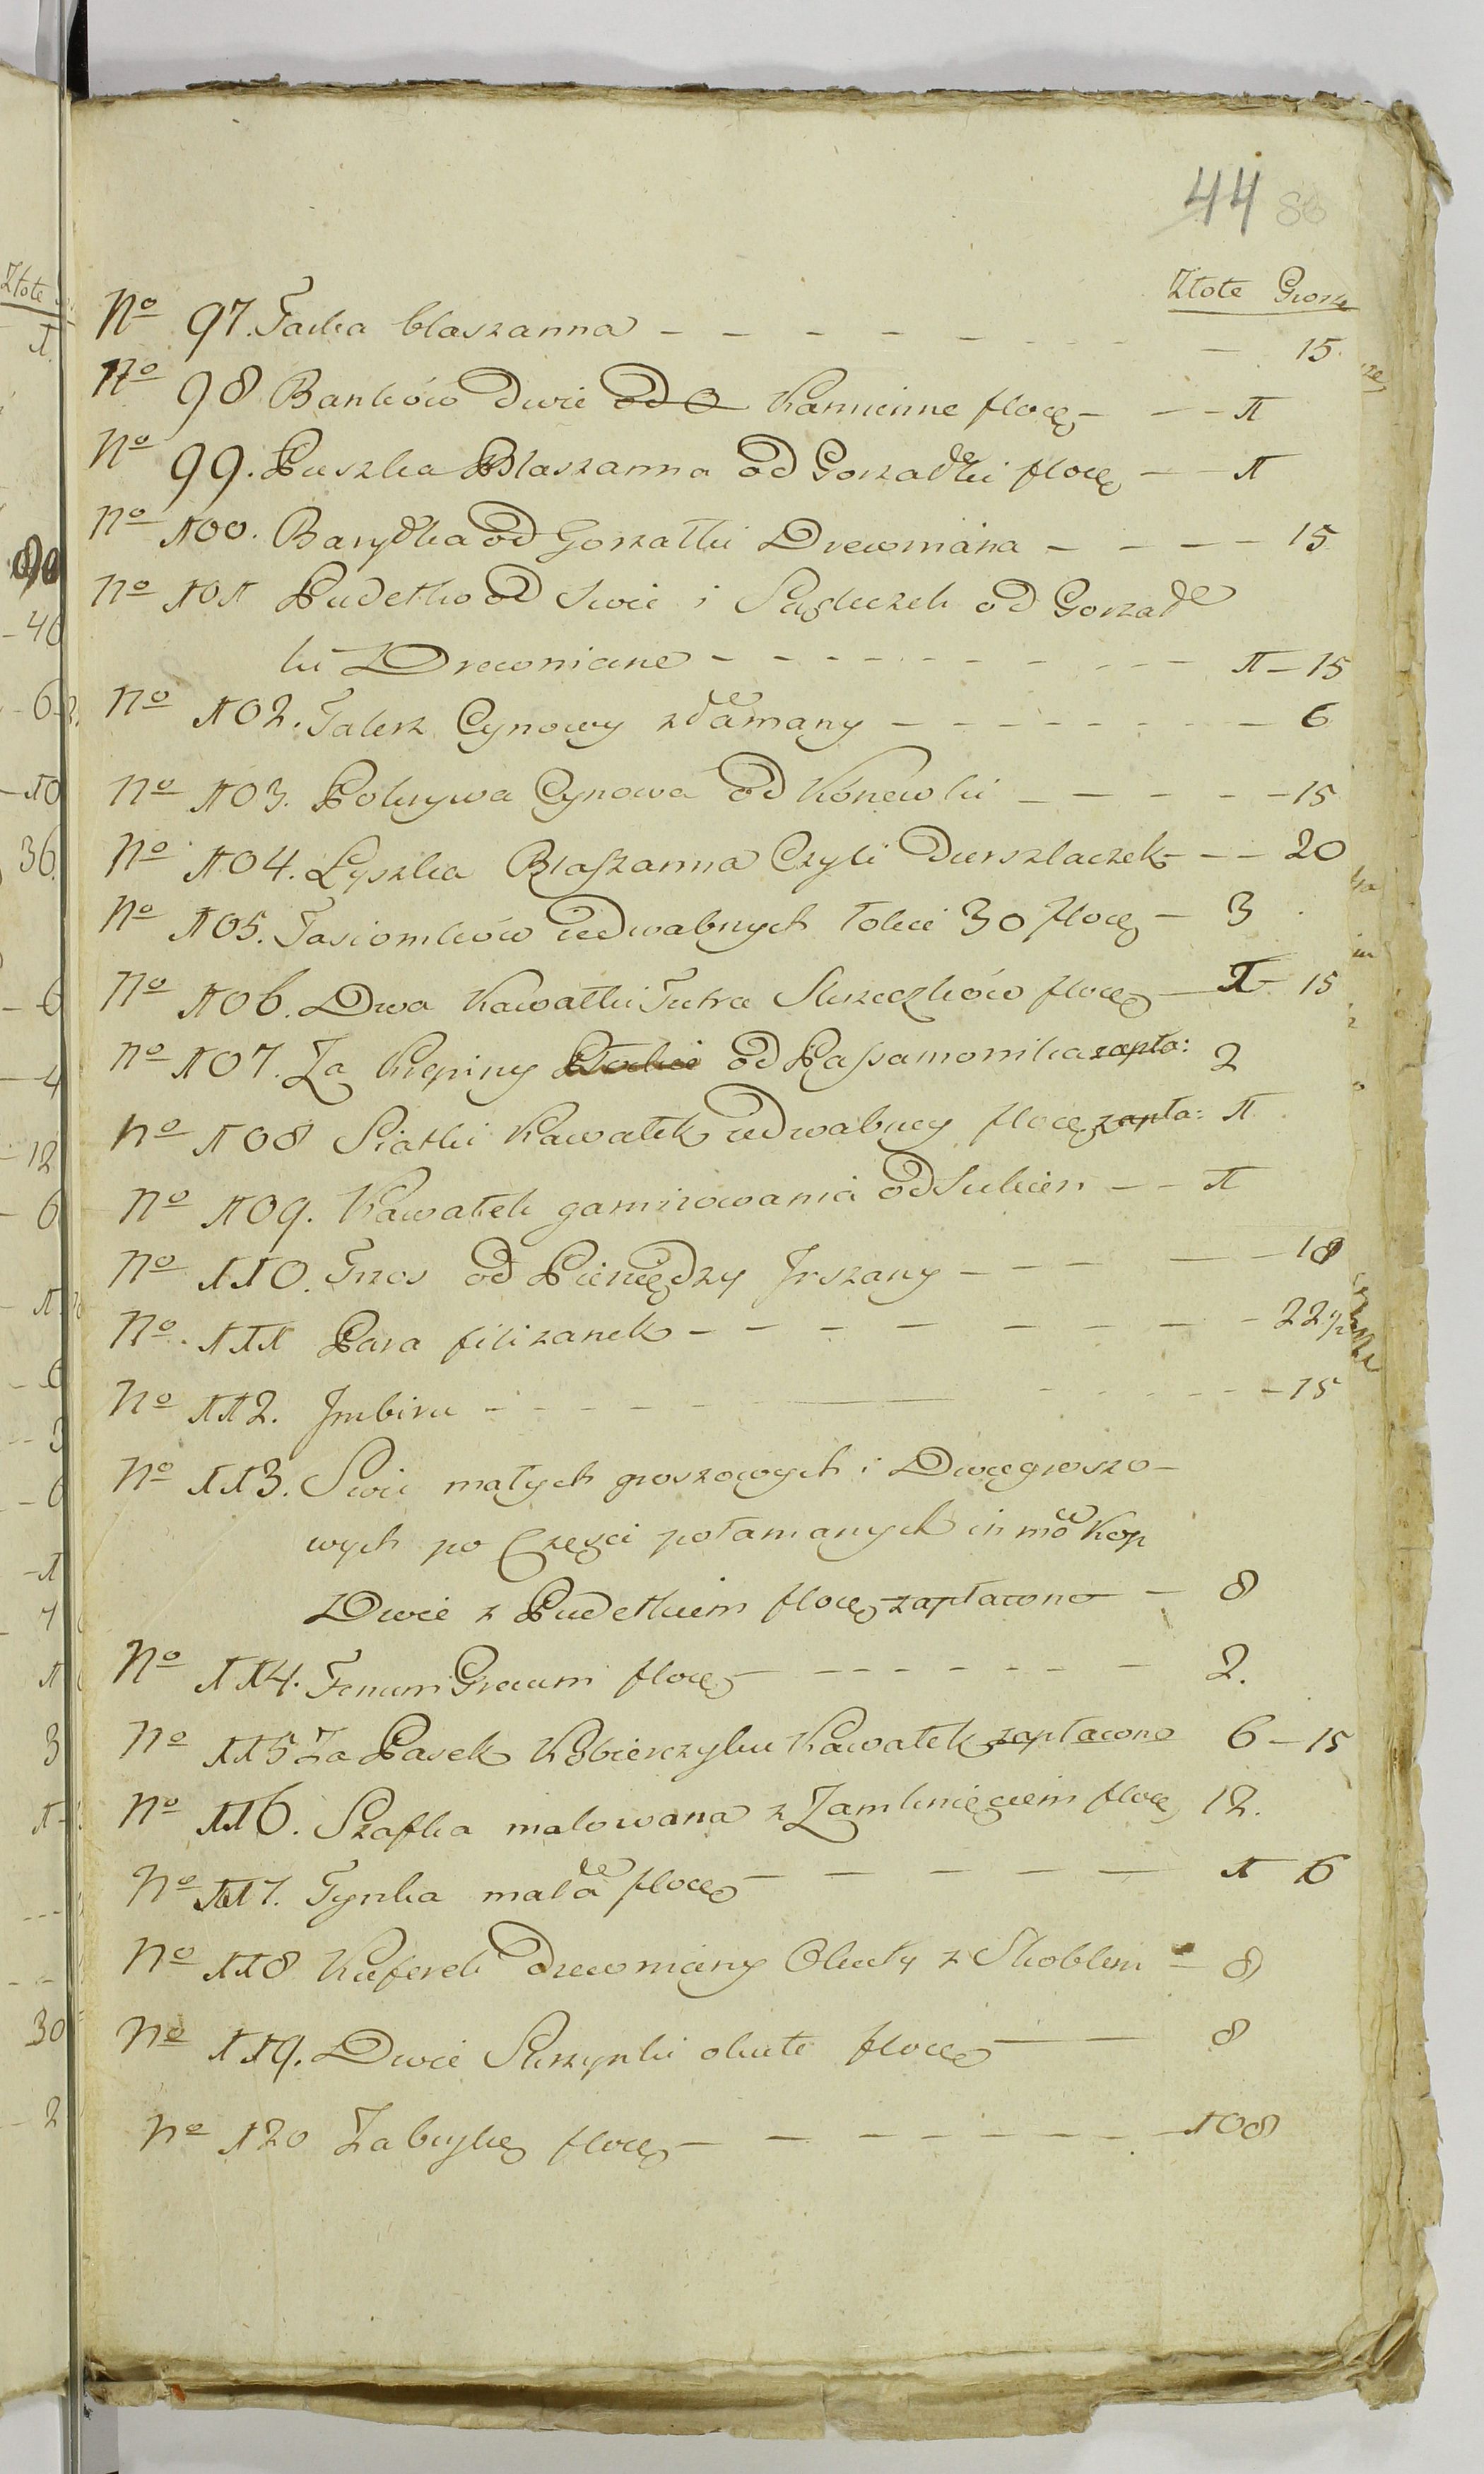 44 86
Złote Grosze
No 97. Tacka blaszanna — — — — — 15.
No 98 Banków Dwie od O Kamienne flocę — — — 1
No 99. Puszka Blaszanna od Gorzadłki flocę — — 1
No 100. Baryłka od Gorzałki Drewniana — — — — 15
No 101 Pudełko od Swic i Pusluczek od Gorzał
ki Drewniane — — — — — — — 1 — 15
No 102. Talerz Cynowy złamany — — — — — — — 6
No 103. Pokrywa Cynowa od Konewki — — — — — 15
No 104. Łyszka Blaszanna Czyli Durszlaczek — — 20
No 105. Tasiomków iedwabnych łokci 30 flocę — 3
No 106. Dwa Kawałki Futra Skrzeczków flocę — 1 — 15
No 107. Za Krepiny od Passamonika zapła: 2
No 108 Siatki Kawałek iedwabney flocę zapła: 1
No 109. Kawałek garnirowania od Sukien — — 1
No 110. Trzos od Pieniędzy Jrszany — — — — — 18
No. 111 Para filiżanek — — — — — — — — 22 1/2
No 112. Jmbiru — — — — — — — — — 15
No 113. Swic małych groszowych i Dwugroszo—
wych po Częsci połamanych in mo Kop
Dwie z Pudełkiem flocę zapłacono — 8
No 114. Fenum Grecum flocę — — — — — — — 2.
No 115 Za Pasek Kobierczyku Kawałek zapłacono 6 — 15
No 116. Szafka malowana z Zamknięciem flocę 12.
No 117. Fynka mała flocę — — — — — 1 6
No 118 Kuferek Drewniany Okuty z Skoblem — 8
No 119. Dwie Skrzynki okute flocę — — 8
No 120 Za brykę flocę — — — — — — — — 108